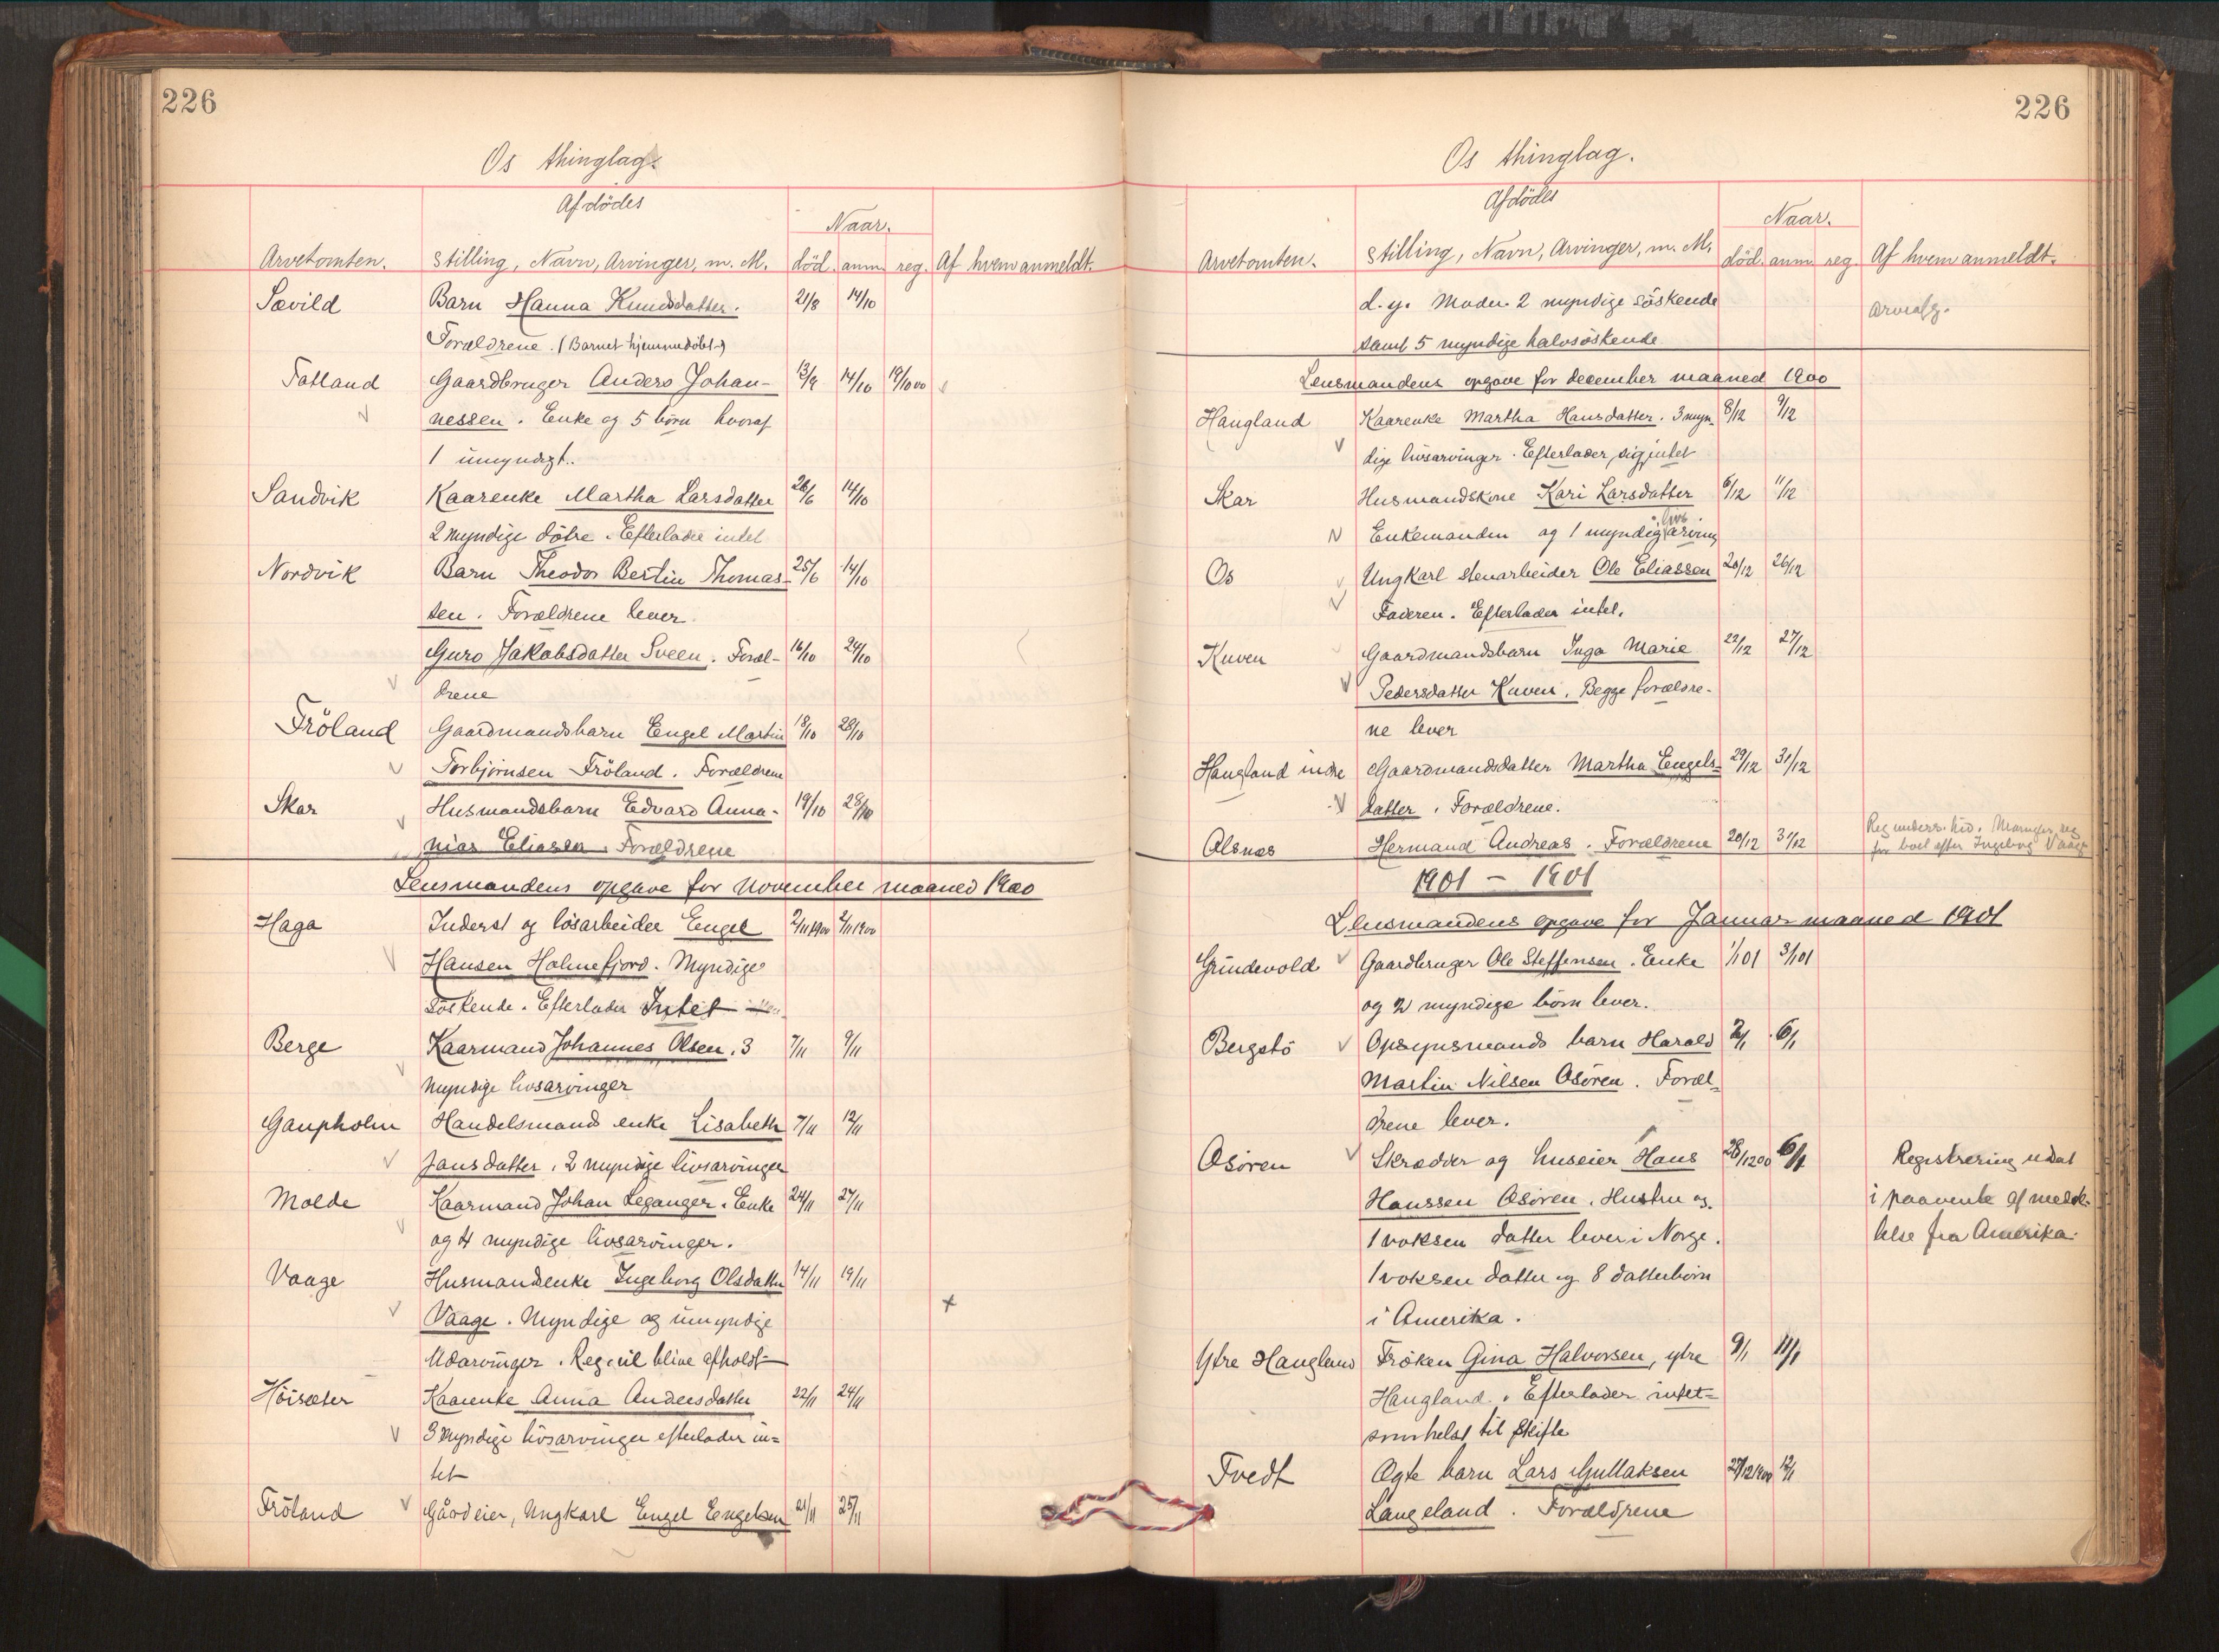 226
Os thinglag.
Afdödes
Naar.
Arvetomten. Stilling, Navn, Arvinger, m. M. död. anm. reg. Af hvem anmeldt.
Sævild Barn Hanna Knudsdatter. 21/8 14/10
Forældrene. (Barnet hjemmedöbt)
Tatland Gaardbruger Anders Johan- 13/9 14/10 19/10 00
nessen. Enke og 5 börn hvoraf
1 umyndigt.
Sandvik Kaarenke Martha Larsdatter 26/6 14/10
2 myndige dötre. Efterlader intet
Nordvik Barn Theodor Bertin Thomas- 25/6 14/10
sen. Forældrene lever
Guro Jakobsdatter Sveen. Foræl- 16/10 24/10
drene
Fröland Gaardmandsbarn Engel Martin 18/10 28/10
Torbjörnsen Fröland. Forældrene
Skar Husmandsbarn Edvard Anna- 19/10 28/10
nias Eliasen. Forældrene
Lensmandens opgave for November maaned 1900
Haga Inderst og lösarbeider Engel 2/11 1900 2/11 1900
Hansen Holmefjord. Myndige
Söskende. Efterlader Intet
Berge Kaarmand Johannes Olsen. 3 7/11 9/11
myndige livsarvinger
Gaupholm Handelsmands enke Lisabeth 7/11 12/11
Jansdatter. 2 myndige livsarvinger
Molde Kaarmand Johan Leganger. Enke 24/11 27/11
og 4 myndige livsarvinger.
Vaage Husmandsenke Ingeborg Olsdatter 14/11 19/11
Vaage. Myndige og umyndige
Udarvinger. Reg. vil blive afholdt
Höisæter Kaarenke Anna Andersdatter 22/11 24/11
3 myndige livsarvinger efterlader in=
tet
Fröland Gårdeier, Ungkarl Engel Engelsen 21/11 25/11
226
Os thinglag.
Afdödes
Naar.
Arvetomten. Stilling, Navn, Arvinger, m. M. död. anm. reg. Af hvem anmeldt.
d.y. Moder. 2 myndige söskende
samt 5 myndige halvsöskende
Lensmandens opgave for december maaned 1900
Haugland Kaarenke Martha Hansdatter. 3 myn- 8/12 9/12
dige livsarvinger. Efterlader sig intet
Skar Husmandskone Kari Larsdatter 6/12 11/12
Enkemanden og 1 myndig livsarving
Os Ungkarl stenarbeider Ole Eliassen 20/12 26/12
Faderen. Efterlader intet.
Kuven Gaardmandsbarn Inga Marie 22/12 27/12
Pedersdatter Kuven. Begge forældre-
ne lever
Haugland indre Gaardmandsdatter Martha Engels- 29/12 31/12
datter. Forældrene.
Alsnæs Hermand Andreas. Forældrene 20/12 31/12 Reg
for boet efter Ingeborg Vaage
1901 - 1901
Lensmandens opgave for Januar maaned 1901
Grindevold Gaardbruger Ole Steffensen. Enke 1/1 01 3/1 01
og 2 myndige börn lever.
Bergstö Opsynsmands barn Harald 2/1 6/1
Martin Nilsen Osören. Foræl-
drene lever.
Osören Skrædder og huseier Hans 28/12 00 6/1 Registrering udsat
Hanssen Osören. Hustru og i paavente af meddel-
1 voksen datter lever i Norge. lelse fra Amerika.
1 voksen datter og 8 datterbörn
i Amerika.
Ytre Haugland Fröken Gina Halvorsen, ytre 9/1 11/1
Haugland. Efterlader intet=
somhelst til Skifte
Tvedt Ægte barn Lars Gullaksen 27/12 1900 12/1
Langeland. Forældrene